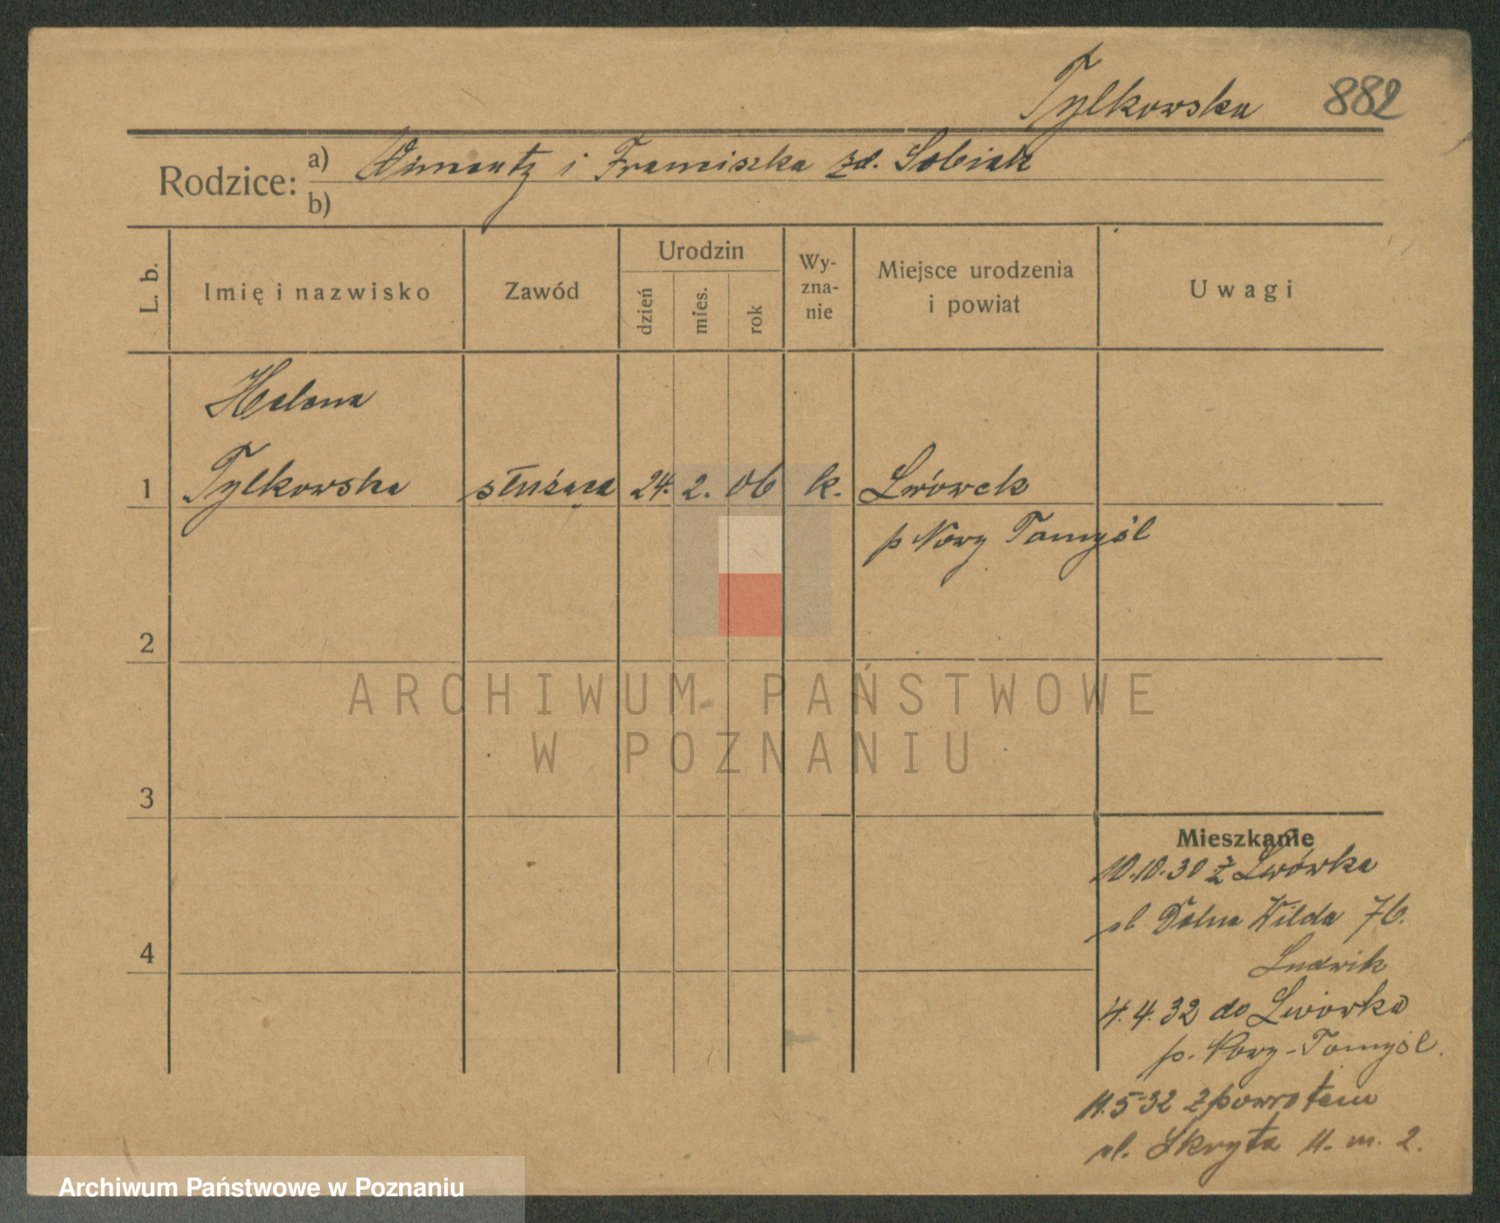 Tylkowska 882
Rodzice: a) i Franciszka zd. Sobiak
b)
L. b. Imię i nazwisko Zawód Urodzin dzień mies. rok Wy-zna-nie Miejsce urodzenia i powiat Uwagi
Helena
1 Tylkowska służąca 24. 2. 06 k. Lwówek
p Nowy Tomyśl
2
ARCHIWUM PAŃSTWOWE
W POZNANIU
3
Mieszkanie
10.10.30 z Lwówka
ul Dolna Wilda 76.
4
Ludwik
4.4.32 do Lwówka
p. Nowy-Tomyśl.
11.5-32 z powrotem
ul. Skryta 11. m. 2.
Archiwum Państwowe w Poznaniu